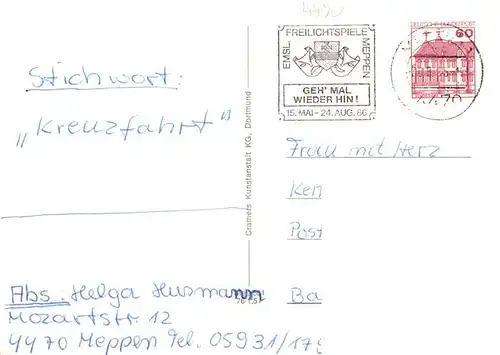 4490
EMSL. FREILICHTSPIELE MEPPEN
GEH' MAL
WIEDER HIN!
15. MAI - 24. AUG. 86
DEUTSCHE BUNDESPOST
60
4470
Stichwort:
„Kreuzfahrt"
Cramers Kunstanstalt KG, Dortmund
Frau mit Herz
Ken
Post
Ba
Abs: Helga Husmann
Mozartstr. 12
4470 Meppen Tel. 05931/179